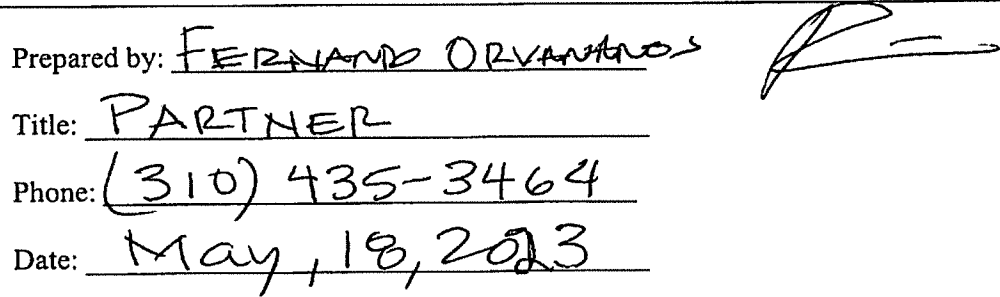 Prepared by: FERNANDO ORVANANOS
Title: PARTNER
Phone: (310) 435-3464
Date: May, 18, 2023